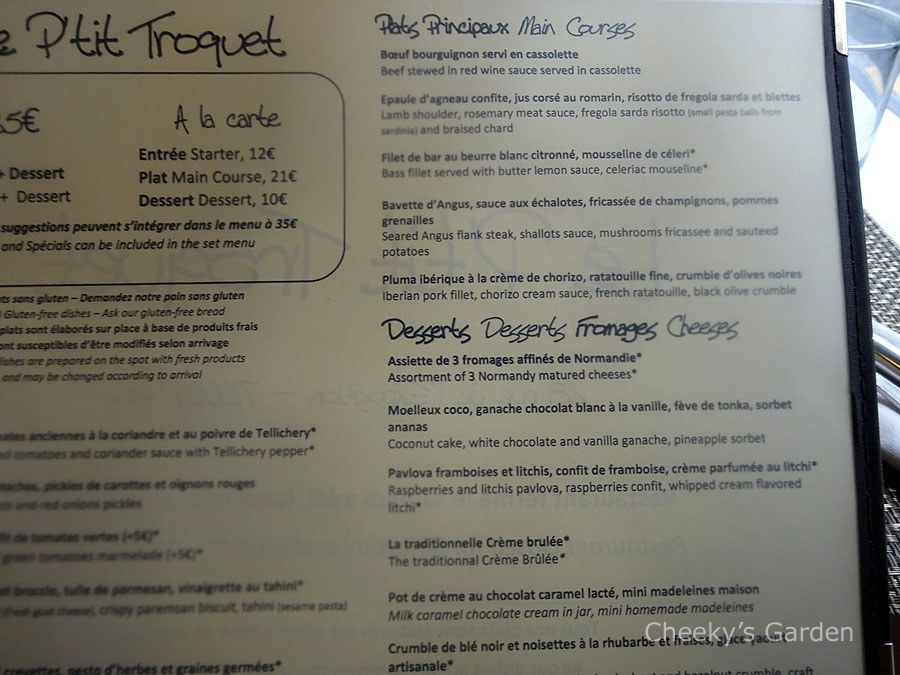 P'tit Troquet
35€
A la carte
+ Dessert
+ Dessert
Entrée Starter, 12€
Plat Main Course, 21€
Dessert Dessert, 10€
suggestions peuvent s'intégrer dans le menu à 35€
and Spécials can be included in the set menu
sans gluten – Demandez notre pain sans gluten
Gluten-free dishes – Ask our gluten-free bread
plats sont élaborés sur place à base de produits frais
susceptibles d'être modifiés selon arrivage
dishes are prepared on the spot with fresh products
and may be changed according to arrival
anciennes à la coriandre et au poivre de Tellichery*
tomatoes and coriander sauce with Tellichery pepper*
pickles de carottes et oignons rouges
and red onions pickles
de tomates vertes (+5€)*
green tomatoes marmelade (+5€)*
broccio, tuile de parmesan, vinaigrette au tahini*
(fresh goat cheese), crispy paremsan biscuit, tahini (sesame pasta)
crevettes, pesto d'herbes et graines germées*
Plats Principaux Main Courses
Bœuf bourguignon servi en cassolette
Beef stewed in red wine sauce served in cassolette
Epaule d'agneau confite, jus corsé au romarin, risotto de fregola sarda et blettes
Lamb shoulder, rosemary meat sauce, fregola sarda risotto (small pasta balls from
sardinia) and braised chard
Filet de bar au beurre blanc citronné, mousseline de céleri*
Bass fillet served with butter lemon sauce, celeriac mouseline*
Bavette d'Angus, sauce aux échalotes, fricassée de champignons, pommes
grenailles
Seared Angus flank steak, shallots sauce, mushrooms fricassee and sauteed
potatoes
Pluma ibérique à la crème de chorizo, ratatouille fine, crumble d'olives noires
Iberian pork fillet, chorizo cream sauce, french ratatouille, black olive crumble
Desserts Desserts Fromages Cheeses
Assiette de 3 fromages affinés de Normandie*
Assortment of 3 Normandy matured cheeses*
Moelleux coco, ganache chocolat blanc à la vanille, fève de tonka, sorbet
ananas
Coconut cake, white chocolate and vanilla ganache, pineapple sorbet
Pavlova framboises et litchis, confit de framboise, crème parfumée au litchi*
Raspberries and litchis pavlova, raspberries confit, whipped cream flavored
litchi*
La traditionnelle Crème brulée*
The traditionnal Crème Brûlée*
Pot de crème au chocolat caramel lacté, mini madeleines maison
Milk caramel chocolate cream in jar, mini homemade madeleines
Crumble de blé noir et noisettes à la rhubarbe et fraises, glace yaourt
artisanale*
hazelnut crumble, craft
Cheeky's Garden